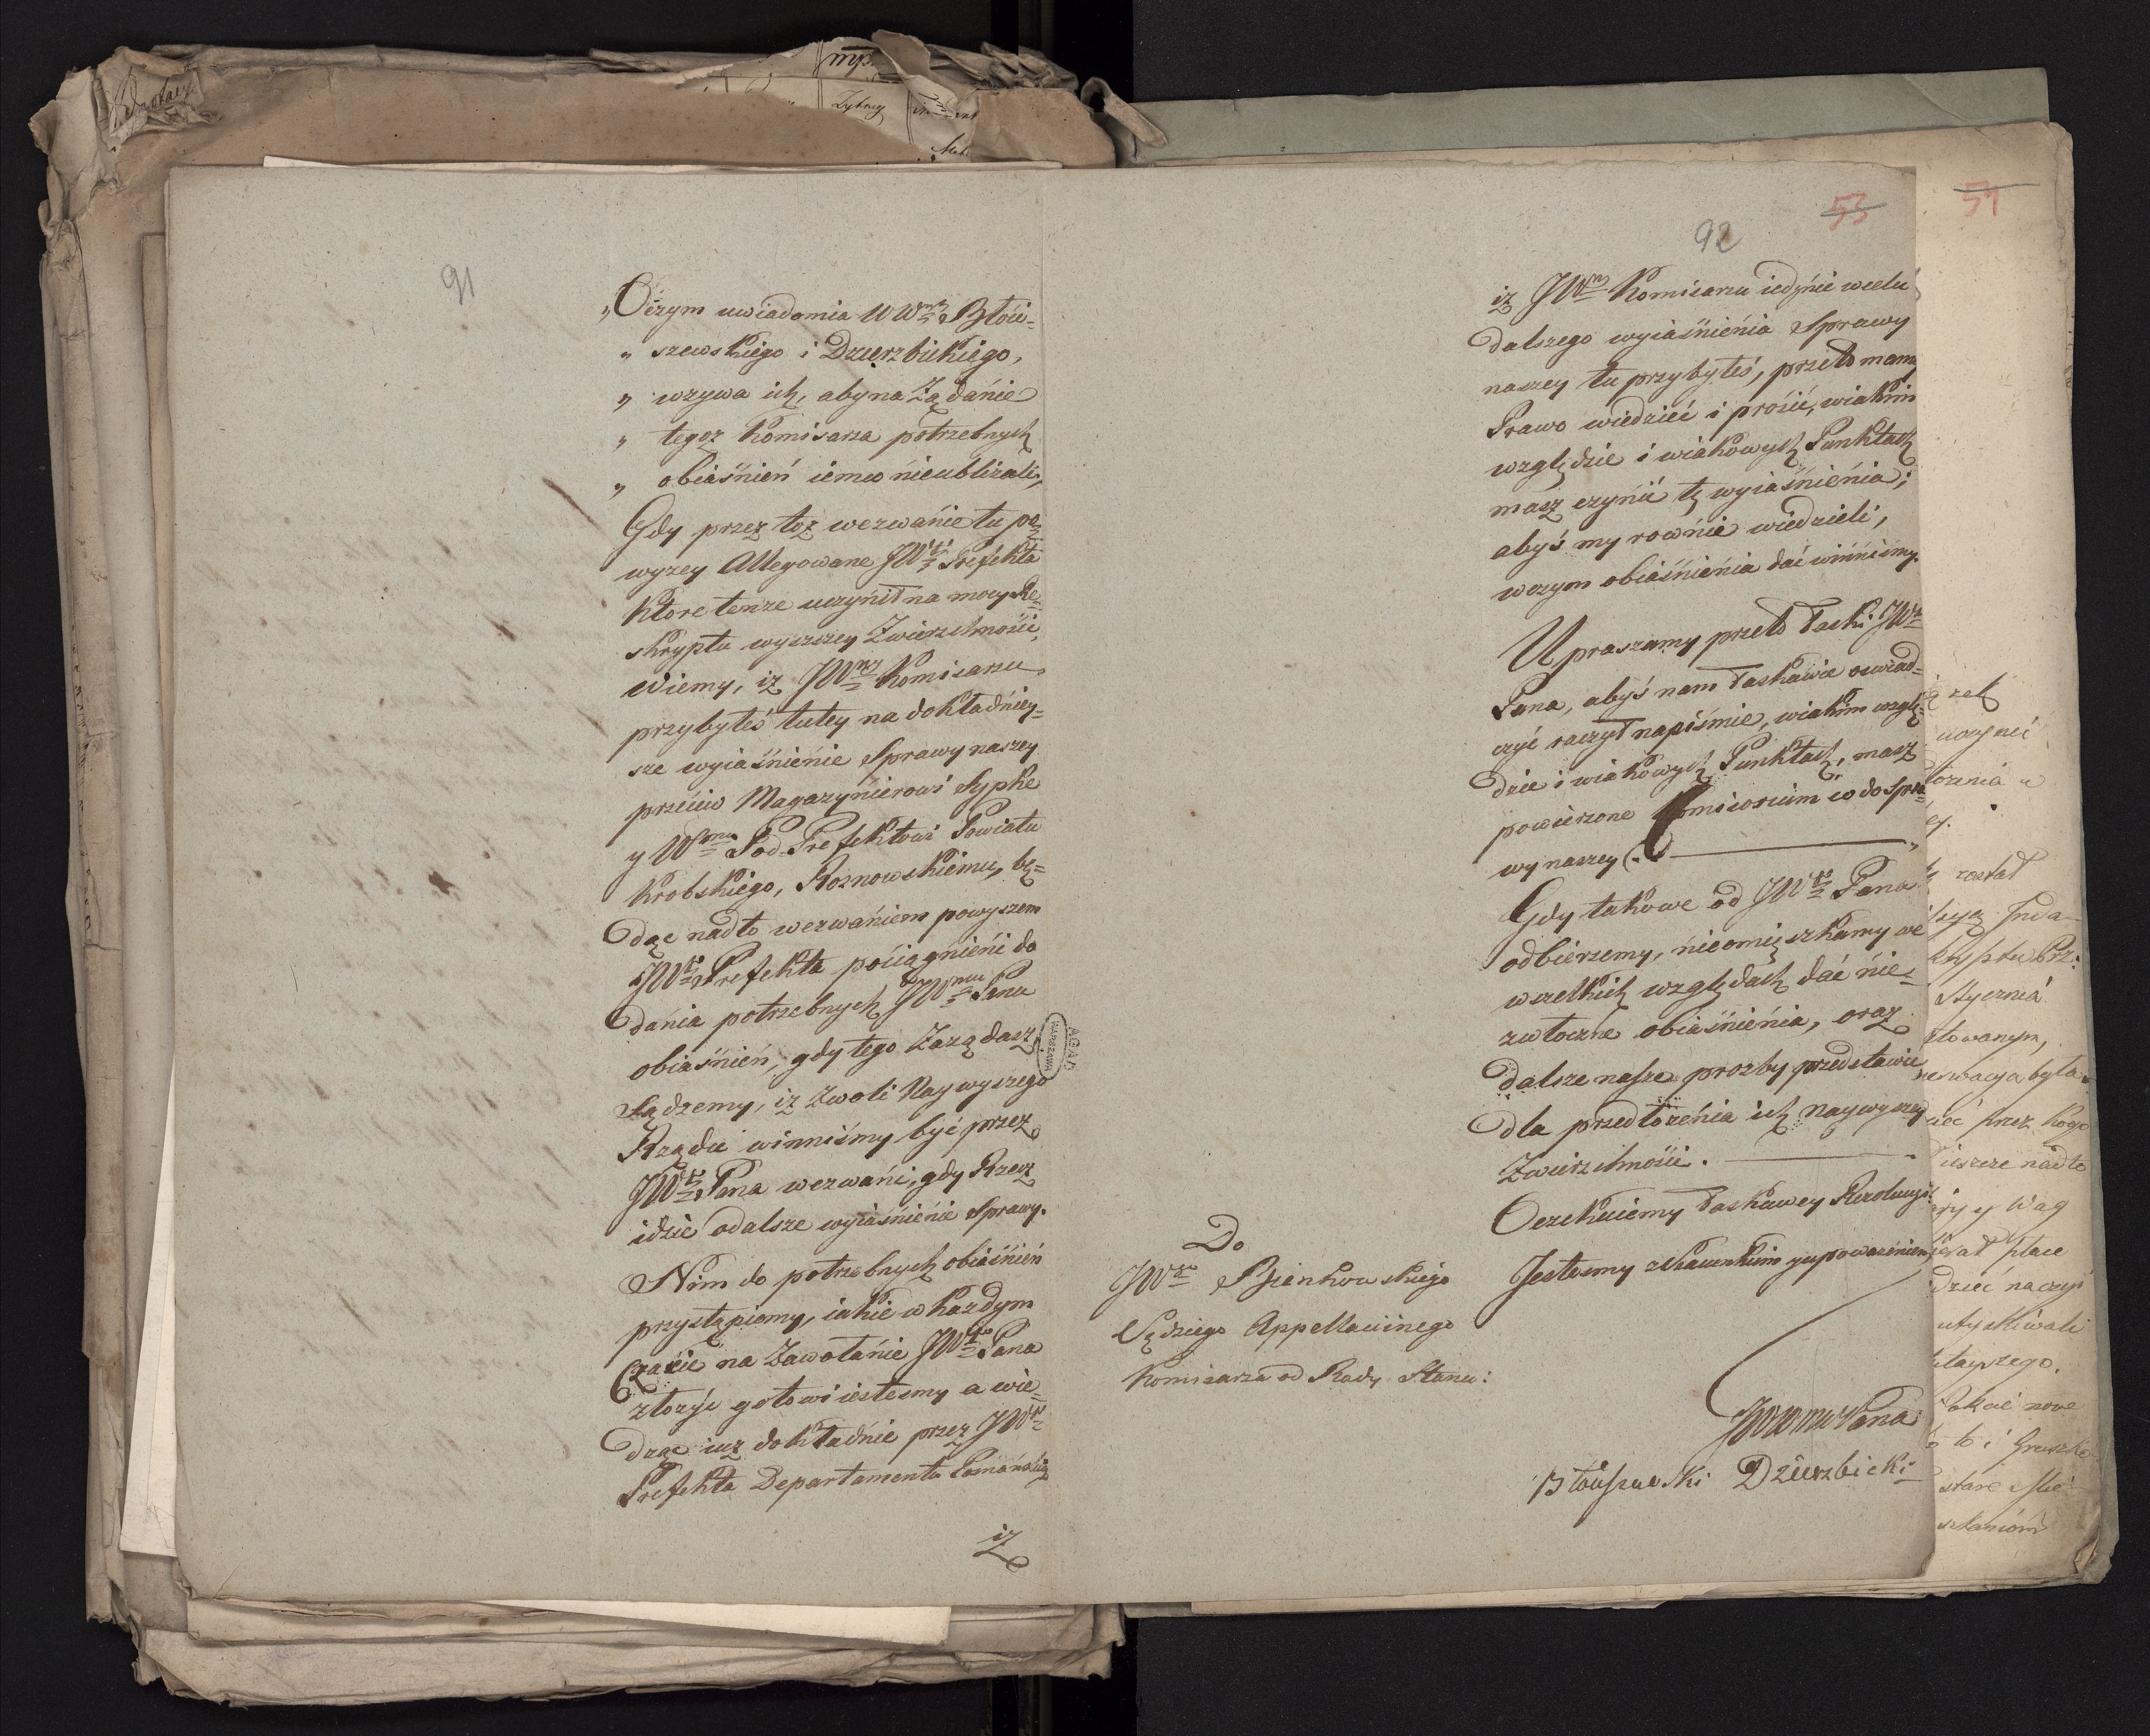 91
„Oczym uwiadomia WWnych Błoci-
„ szewskiego i Dzierzbickiego,
„ wzywa ich, aby na Żądanie
„ tegoz Komisarza potrzebnych
„ obiaśnień iemu nieubliżali,
Gdy przez toż wezwanie tu po
wyzey Allegowane JWgo Prefekta
Ktore tenze uczynił na mocy Re-
skryptu wyszszey Zwierzchności,
Wiemy, iż JWny Komisarzu
przybyłeś tutey na dokładniey-
sze wyiaśnienie Sprawy naszey
przeciw Magazynierowi Sypke
y Wmu Pod-Prefektowi Powiatu
Krobskiego, Roznowskiemu, bę-
dąc nadto wezwaniem powyszem
JWgo Prefekta pociągnieni do
dania potrzebnych JWmu Panu
obiaśnień, gdy tego Zażądasz,
Sądzemy, iż zwoli Naywyszego
Rządu winniśmy być przez
JWgo Pana wezwani, gdy Rzecz
idzie odalsze wyiaśnienie Sprawy.
Nim do potrzebnych obiaśnień
przystąpiemy, iakie w każdym
Czasie na Zawołanie JWgo Pana
złożyć gotowi iestesmy a wie-
dząc iuż dokładnie przez JWgo
Prefekta Departamentu Poznańskiego
iż
AGAD
WARSZAWA
53
92
iż JWny Komisarzu iedynie wcelu
dalszego wyiaśnienia Sprawy
naszey tu przybyłeś, przeto mamy
Prawo wiedzieć i prosić, wiakim
względzie i wiakowych Punktach
masz czynić te wyiaśnienia;
abyś my rownie wiedzieli,
wczym obiaśnienia dać winniśmy.
Upraszamy przeto Łaski JWgo
Pana, abyś nam Łaskawie oswiad-
czyć raczył napismie, wiakim wzglę-
dzie i wiakowych Punktach, masz
powierzone Comissorium co do Spra-
wy naszey.
Gdy takowe od JWgo Pana
odbierzemy, nieomięszkamy we
wszelkich względach dać nie-
zwłoczne obiaśnienia, oraz
dalsze nasze prozby przedstawić
dla przedłożenia ich naywyszey
Zwierzchności.
Oczekuiemy Łaskawey Rezolucyi
Jestesmy z Szacunkiem yupoważnieniem
Do
JWgo Bienkowskiego
Sędziego Appellacyinego
Komisarza od Rady Stanu:
JWWmu Pana
Błociszewski Dzierzbicki
51
uczynić
Stycznia
była
przez Kogo
ieszcze nadto
y Wag
place
utyskiwali
nowe
to i
stare